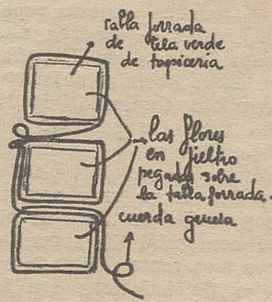 tabla forrada
de tela verde
de tapiceria
las flores
en fieltro
pegadas sobre
la tabla forrada.
cuerda gruesa